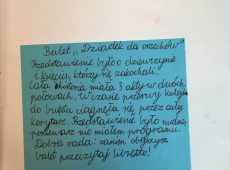 Balet „Dziadek do orzechów”
Przedstawienie było o dziewczynie
i Księciu, którzy się zakochali.
Cała historia miała 3 akty w dwóch
połowach. W czasie przerwy kolejka
do bufetu ciągnęła się przez cały
korytarz. Przedstawienie było nudne,
ponieważ nie miałem programu.
Dobra rada: zanim obejrzysz
balet przeczytaj libretto!